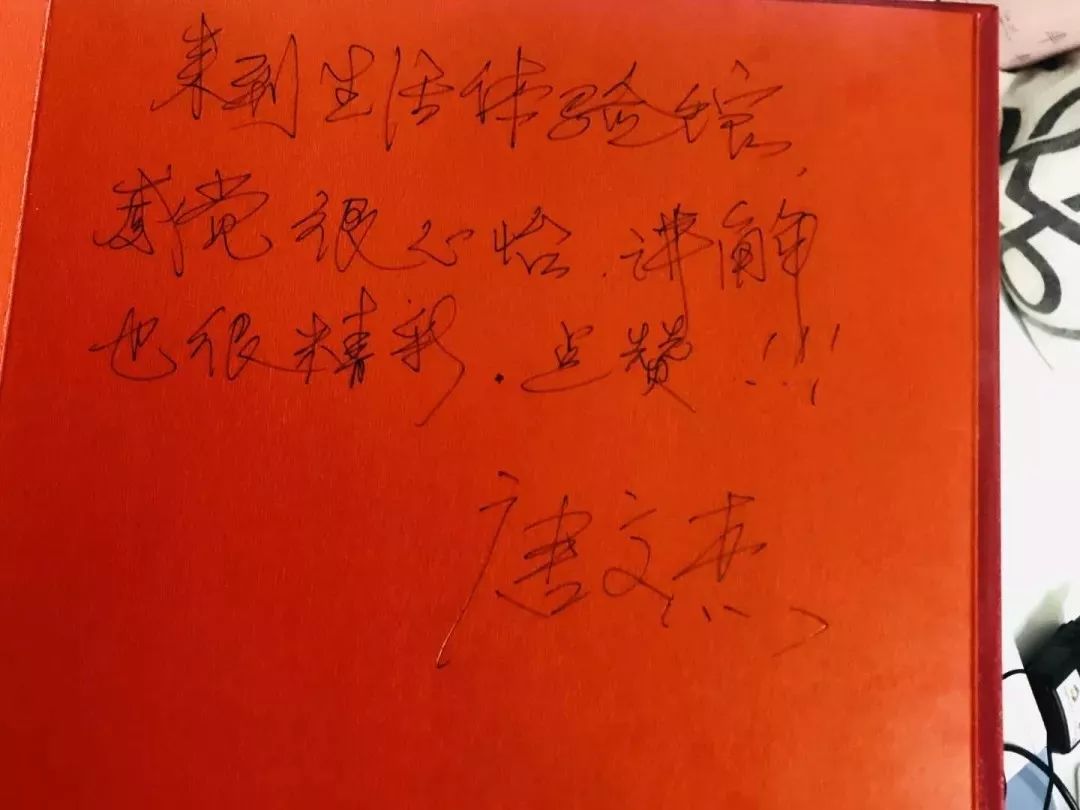 来到生活体验馆,
感觉很心怡.讲解
也很精彩.点赞!!!
唐文杰